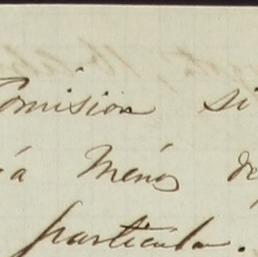 Comision si
á Menos de
particular.